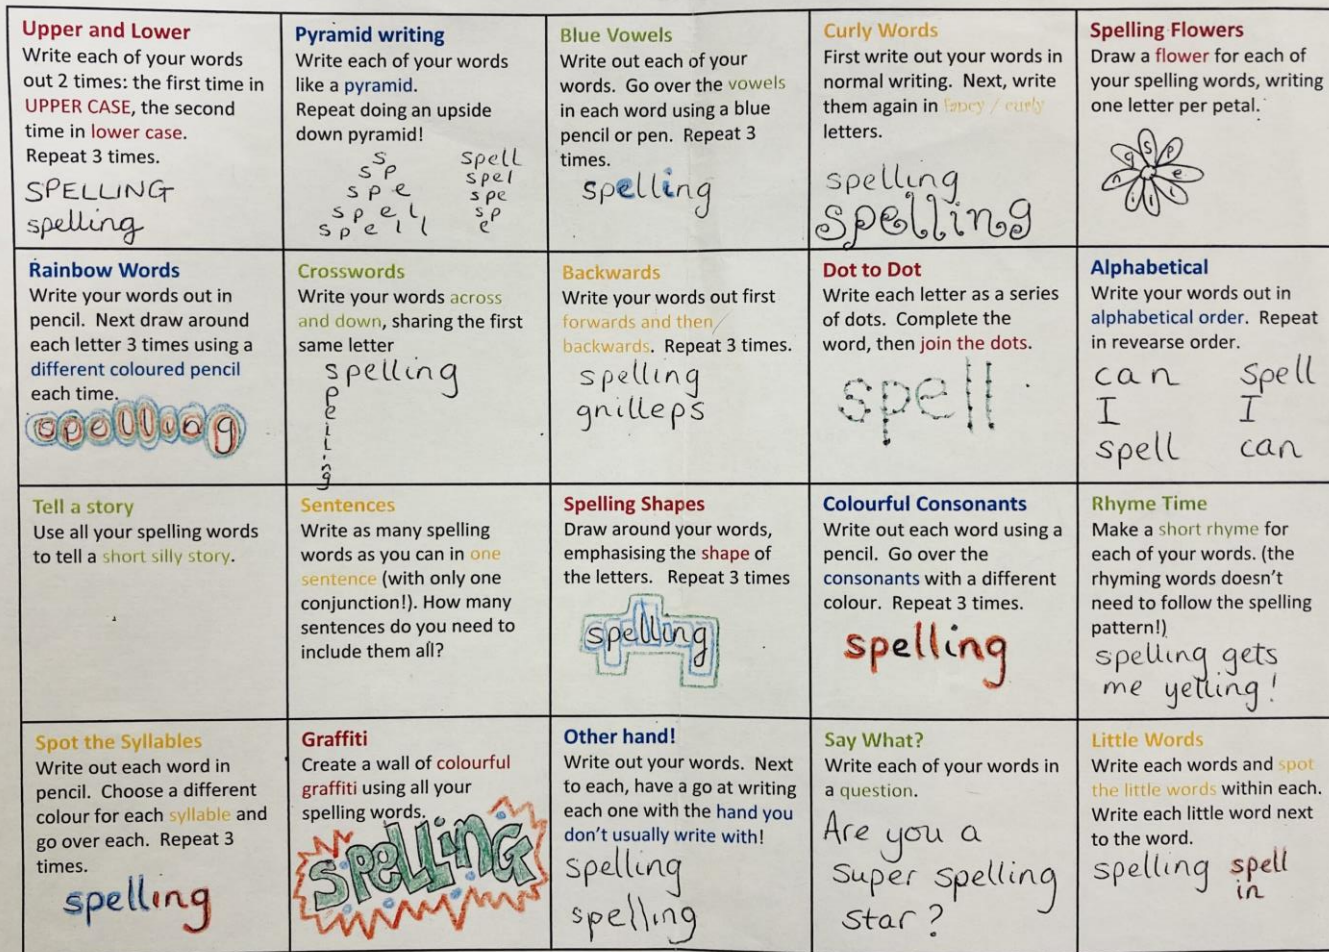 Upper and Lower
Write each of your words
out 2 times: the first time in
UPPER CASE, the second
time in lower case.
Repeat 3 times.
SPELLING
spelling
Pyramid writing
Write each of your words
like a pyramid.
Repeat doing an upside
down pyramid!
s
sp
spe
spel
spell
spell
spel
spe
sp
e
Blue Vowels
Write out each of your
words. Go over the vowels
in each word using a blue
pencil or pen. Repeat 3
times.
spelling
Curly Words
First write out your words in
normal writing. Next, write
them again in fancy / curly
letters.
spelling
spelling
Spelling Flowers
Draw a flower for each of
your spelling words, writing
one letter per petal.
s p e l l i n g
Rainbow Words
Write your words out in
pencil. Next draw around
each letter 3 times using a
different coloured pencil
each time.
spelling
Crosswords
Write your words across
and down, sharing the first
same letter
spelling
p
e
l
l
i
n
g
Backwards
Write your words out first
forwards and then
backwards. Repeat 3 times.
spelling
gnilleps
Dot to Dot
Write each letter as a series
of dots. Complete the
word, then join the dots.
spell
Alphabetical
Write your words out in
alphabetical order. Repeat
in revearse order.
can
I
spell
spell
I
can
Tell a story
Use all your spelling words
to tell a short silly story.
Sentences
Write as many spelling
words as you can in one
sentence (with only one
conjunction!). How many
sentences do you need to
include them all?
Spelling Shapes
Draw around your words,
emphasising the shape of
the letters. Repeat 3 times
spelling
Colourful Consonants
Write out each word using a
pencil. Go over the
consonants with a different
colour. Repeat 3 times.
spelling
Rhyme Time
Make a short rhyme for
each of your words. (the
rhyming words doesn't
need to follow the spelling
pattern!)
spelling gets
me yelling!
Spot the Syllables
Write out each word in
pencil. Choose a different
colour for each syllable and
go over each. Repeat 3
times.
spelling
Graffiti
Create a wall of colourful
graffiti using all your
spelling words.
SPELLING
Other hand!
Write out your words. Next
to each, have a go at writing
each one with the hand you
don't usually write with!
spelling
spelling
Say What?
Write each of your words in
a question.
Are you a
super spelling
star?
Little Words
Write each words and spot
the little words within each.
Write each little word next
to the word.
spelling spell
in